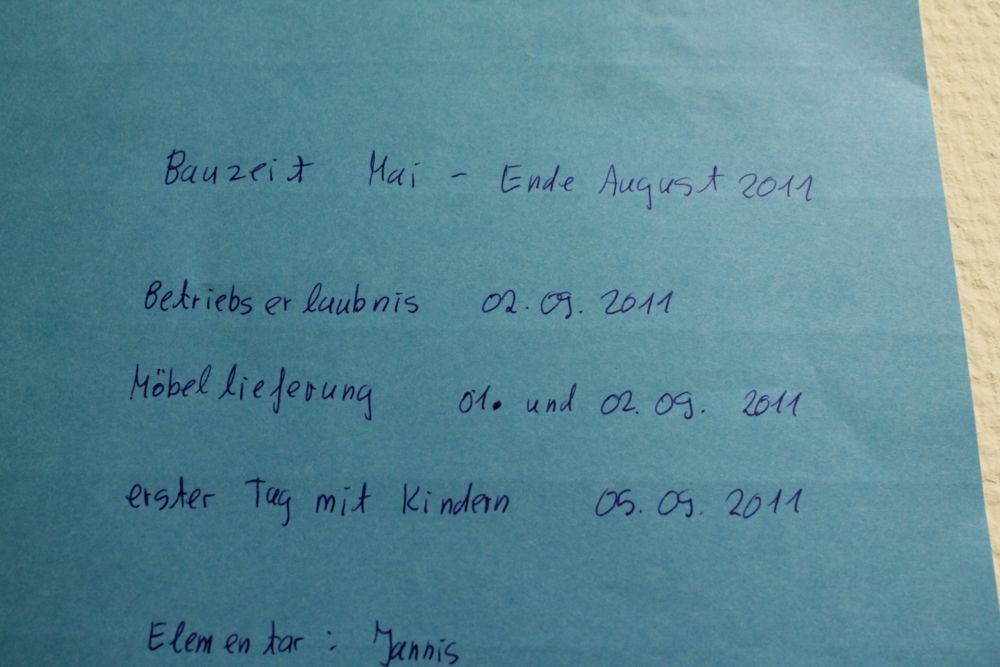 Bauzeit Mai - Ende August 2011
Betriebserlaubnis 02.09.2011
Möbellieferung 01. und 02.09. 2011
erster Tag mit Kindern 05.09.2011
Elementar: Jannis